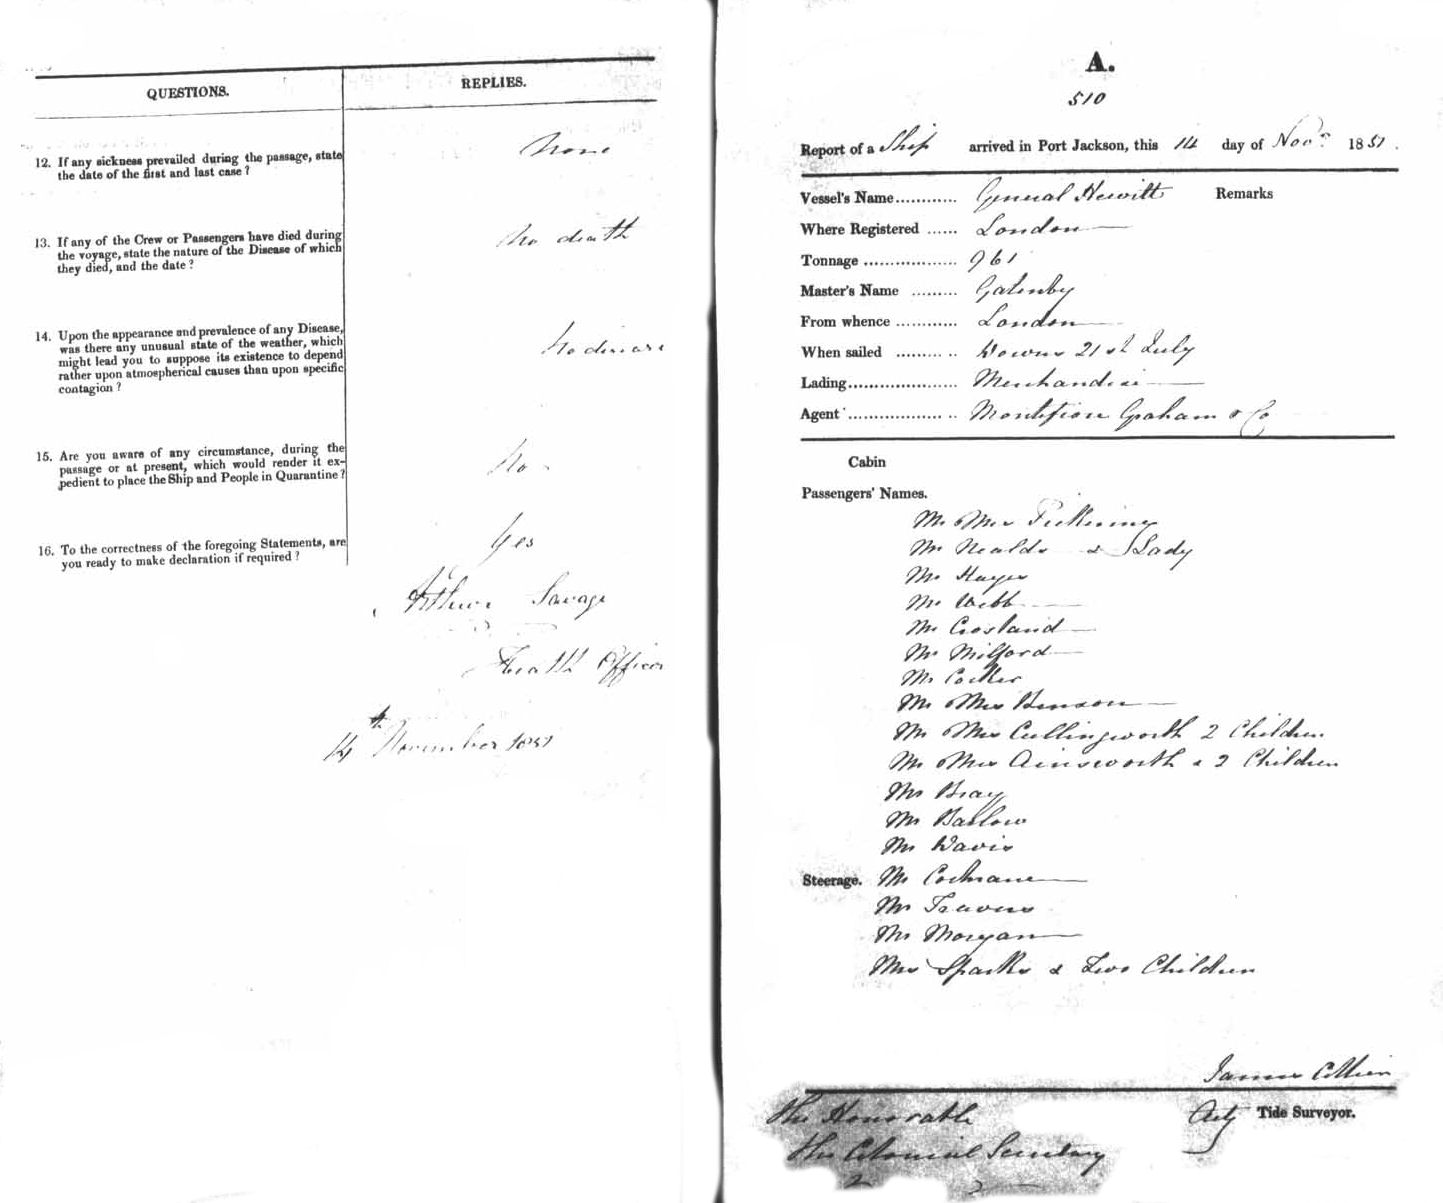 QUESTIONS.
REPLIES.
12. If any sickness prevailed during the passage, state
the date of the first and last case ?
None
13. If any of the Crew or Passengers have died during
the voyage, state the nature of the Disease of which
they died, and the date ?
No death
14. Upon the appearance and prevalence of any Disease,
was there any unusual state of the weather, which
might lead you to suppose its existence to depend
rather upon atmospherical causes than upon specific
contagion ?
No disease
15. Are you aware of any circumstance, during the
passage or at present, which would render it ex-
pedient to place the Ship and People in Quarantine ?
No
16. To the correctness of the foregoing Statements, are
you ready to make declaration if required ?
Yes
Arthur Savage
Health Officer
14th November 1851
A.
510
Report of a Ship arrived in Port Jackson, this 14 day of Novr 1851.
Vessel's Name............ General Hewitt Remarks
Where Registered ...... London
Tonnage .................. 961
Master's Name ......... Gatenby
From whence ............ London
When sailed ......... .. Downs 21st July
Lading...................... Merchandise
Agent .................. .. Montefiore Graham & Co
Cabin
Passengers' Names.
Mr Mrs Pickering
Mr Nealds & Lady
Mr Hayes
Mr Webb
Mr Crosland
Mr Milford
Mr
Mr Mrs Benson
Mr Mrs Cullingworth 2 Children
Mr Mrs Ainsworth & 2 Children
Mr Bray
Mr Barlow
Mr Davis
Steerage. Mr Cochrane
Mr Travers
Mr Morgan
Mrs Sparks & Two Children
James
Actg Tide Surveyor.
The Honorable
The Colonial Secretary